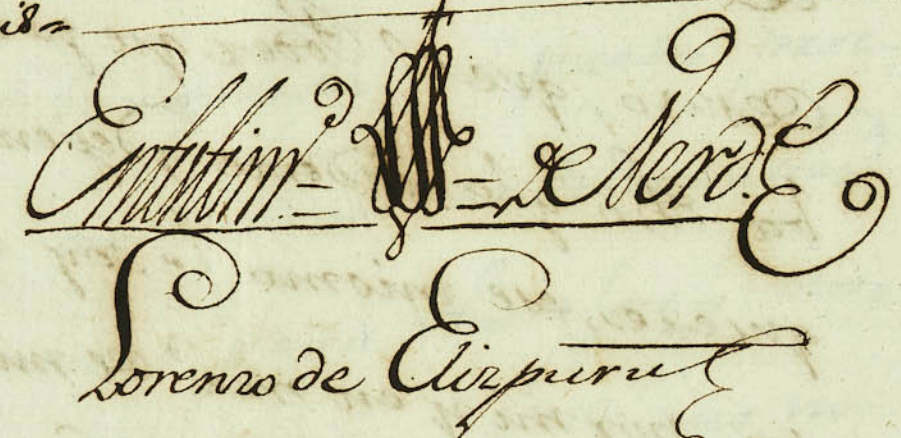 En testim.º = = de Verd.
Lorenzo de Elizpuru